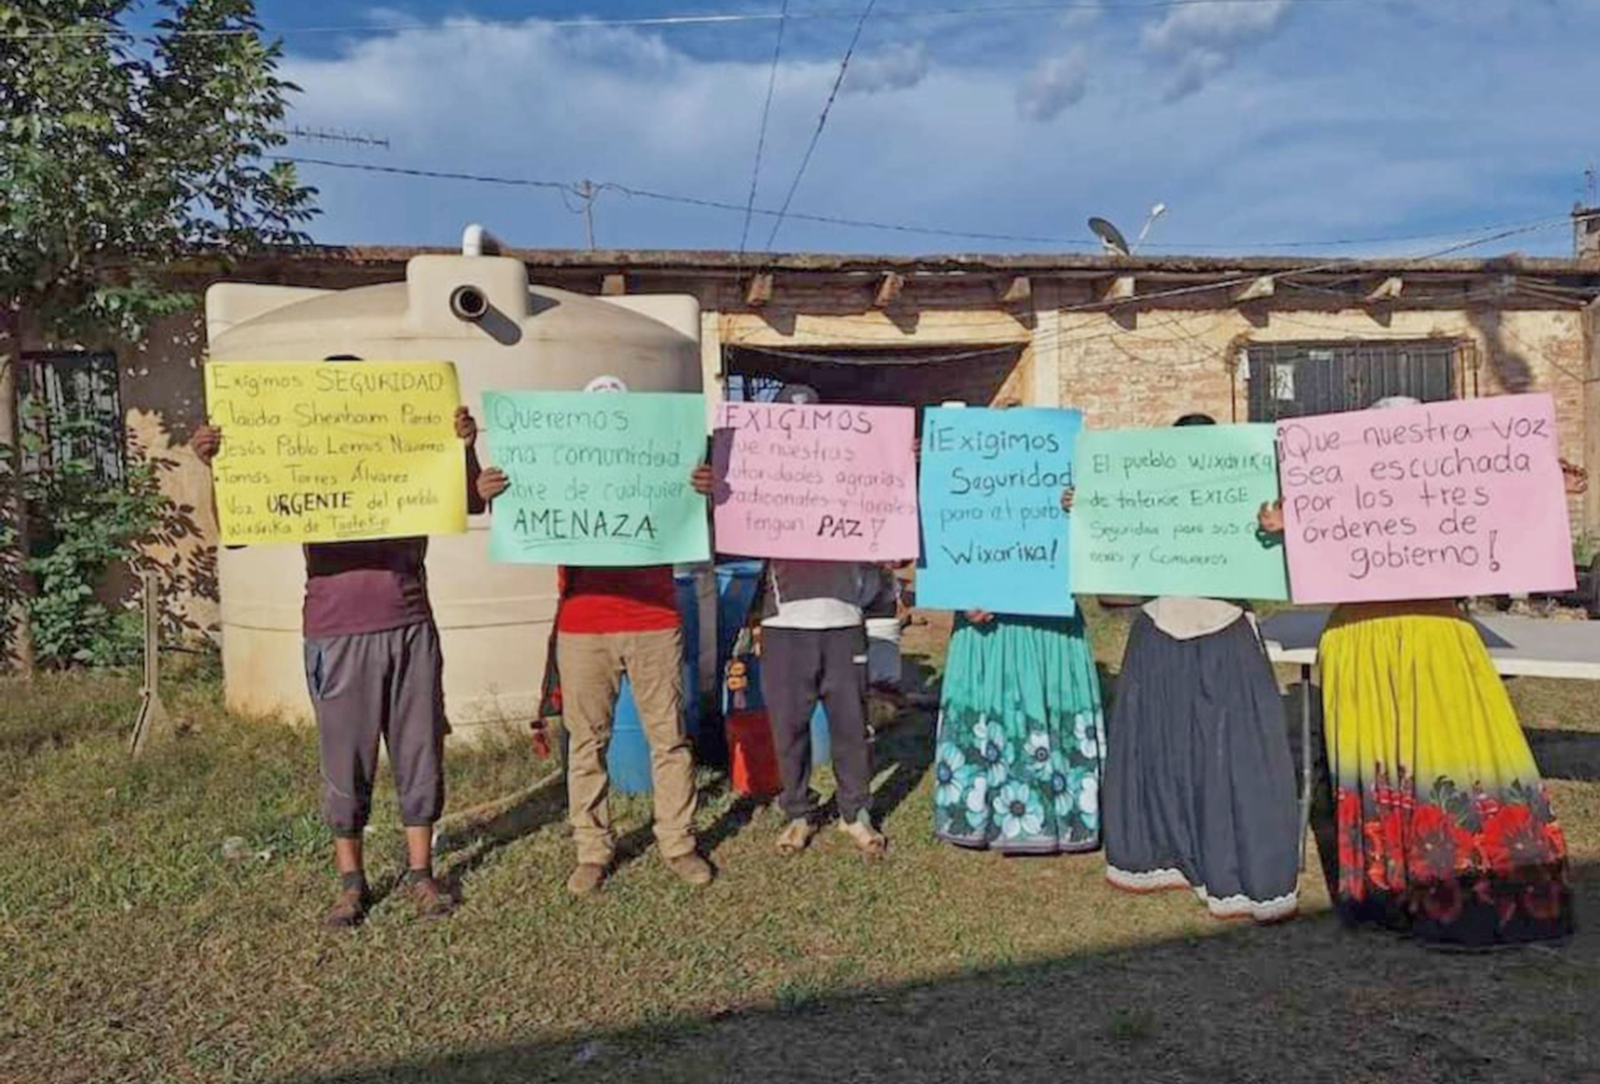 Exigimos SEGURIDAD
Claudia Sheinbaum Pardo
Jesús Pablo Lemus Navarro
Tomás Torres Álvarez
Voz URGENTE del pueblo
Wixárika de
Queremos
una comunidad
libre de cualquier
AMENAZA
¡EXIGIMOS
que nuestras
autoridades agrarias
tradicionales y locales
tengan PAZ!
¡Exigimos
Seguridad
para el pueblo
Wixarika!
El pueblo Wixarika
de tateikie EXIGE
Seguridad para sus
y Comuneros
¡Que nuestra voz
sea escuchada
por los tres
órdenes de
gobierno!